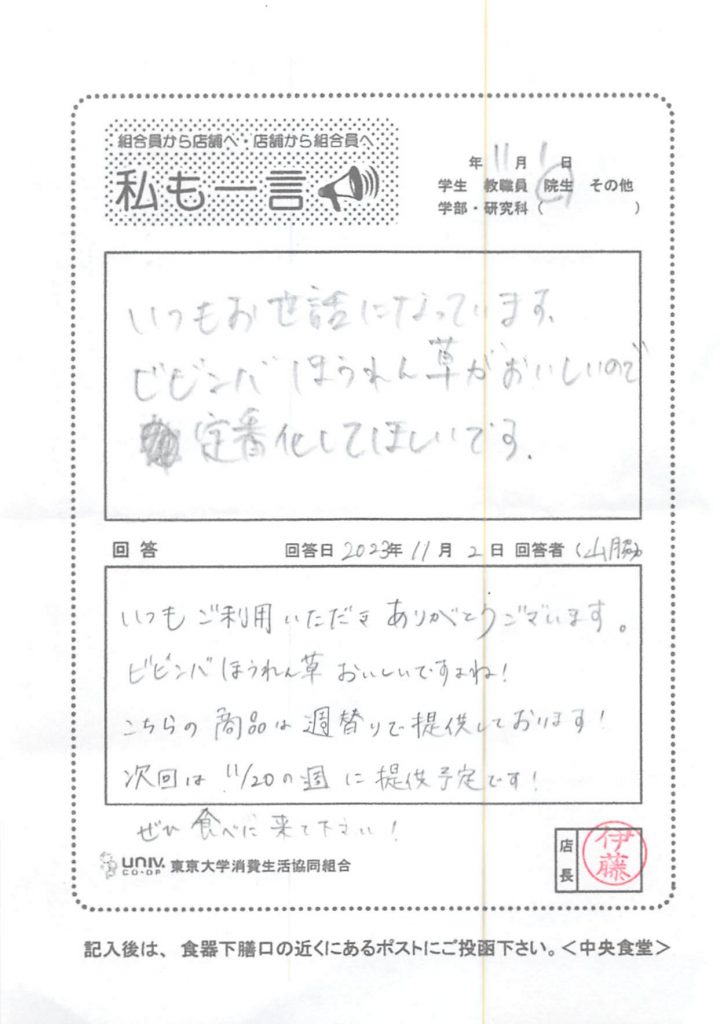 組合員から店舗へ・店舗から組合員へ
私も一言
年 11月 1日
学生 教職員 院生 その他
学部・研究科（　　　　）
いつもお世話になっています。
ビビンバほうれん草がおいしいので
定番化してほしいです。
回答 回答日 2023年 11月 2日 回答者（山脇
いつもご利用いただきありがとうございます。
ビビンバほうれん草おいしいですよね！
こちらの商品は週替りで提供しております！
次回は 11/20の週に提供予定です！
ぜひ食べに来て下さい！
店長 伊藤
UNIV. CO-OP 東京大学消費生活協同組合
記入後は、食器下膳口の近くにあるポストにご投函下さい。＜中央食堂＞